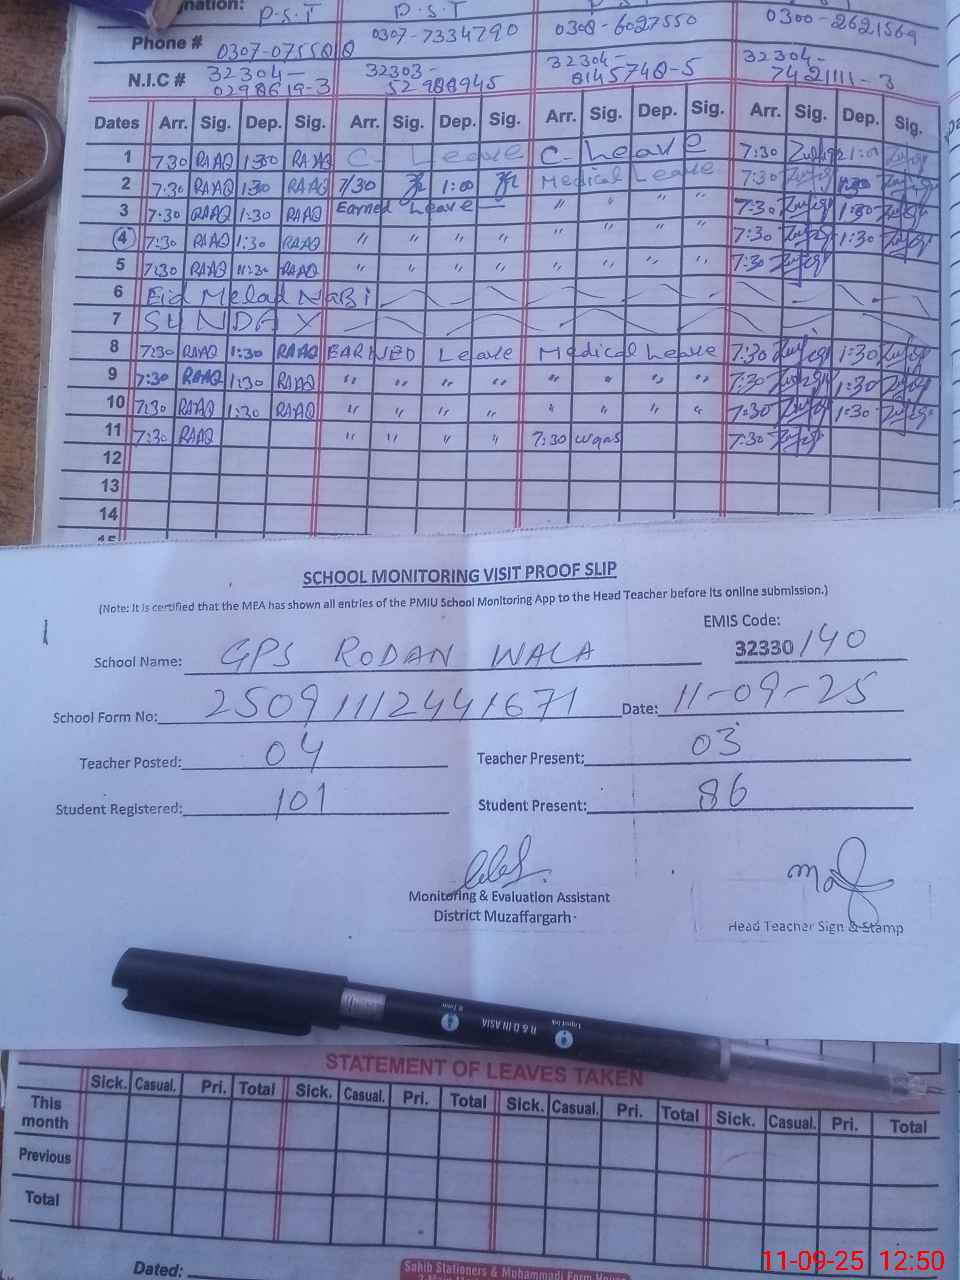 nation: P.S.T P.S.T
Phone # 0307-0755010 0307-7334790 0308-6027550 0300-2621569
N.I.C # 32304- 32303- 32304- 32304-
0298619-3 52988945 8145740-5 7421111-3
Dates Arr. Sig. Dep. Sig. Arr. Sig. Dep. Sig. Arr. Sig. Dep. Sig. Arr. Sig. Dep. Sig.
1 7:30 RAAQ 1:30 RAAQ C- Leave C- Leave 7:30
2 7:30 RAAQ 1:30 RAAQ 7/30 1:00 Medical Leave 7:30 1:30
3 7:30 RAAQ 1:30 RAAQ Earned Leave — " " " " 7:30 1:30
4 7:30 RAAQ 1:30 RAAQ " " " " " " " " 7:30 1:30
5 7:30 RAAQ 11:30 RAAQ " " " " " " " " 7:30
6 Eid Melad NaBi
7 SUNDAY
8 7:30 RAAQ 1:30 RAAQ EARNED Leave Medical Leave 7:30 1:30
9 7:30 RAAQ 1:30 RAAQ " " " " " " " " 7:30 1:30
10 7:30 RAAQ 1:30 RAAQ " " " " " " " " 7:30 1:30
11 7:30 RAAQ " " " " 7:30 wqas 7:30
12
13
14
15
SCHOOL MONITORING VISIT PROOF SLIP
(Note: It is certified that the MEA has shown all entries of the PMIU School Monitoring App to the Head Teacher before its online submission.)
EMIS Code:
School Name: GPS RODAN WALA 32330140
School Form No: 250911112441671 Date: 11-09-25
Teacher Posted: 04 Teacher Present: 03
Student Registered: 101 Student Present: 86
Monitoring & Evaluation Assistant
District Muzaffargarh
Head Teacher Sign & Stamp
R & D IN ASIA
Liquid Ink
STATEMENT OF LEAVES TAKEN
Sick. Casual. Pri. Total Sick. Casual. Pri. Total Sick. Casual. Pri. Total Sick. Casual. Pri. Total
This month
Previous
Total
Dated:
Sahib Stationers & Muhammadi Form House
11-09-25 12:50